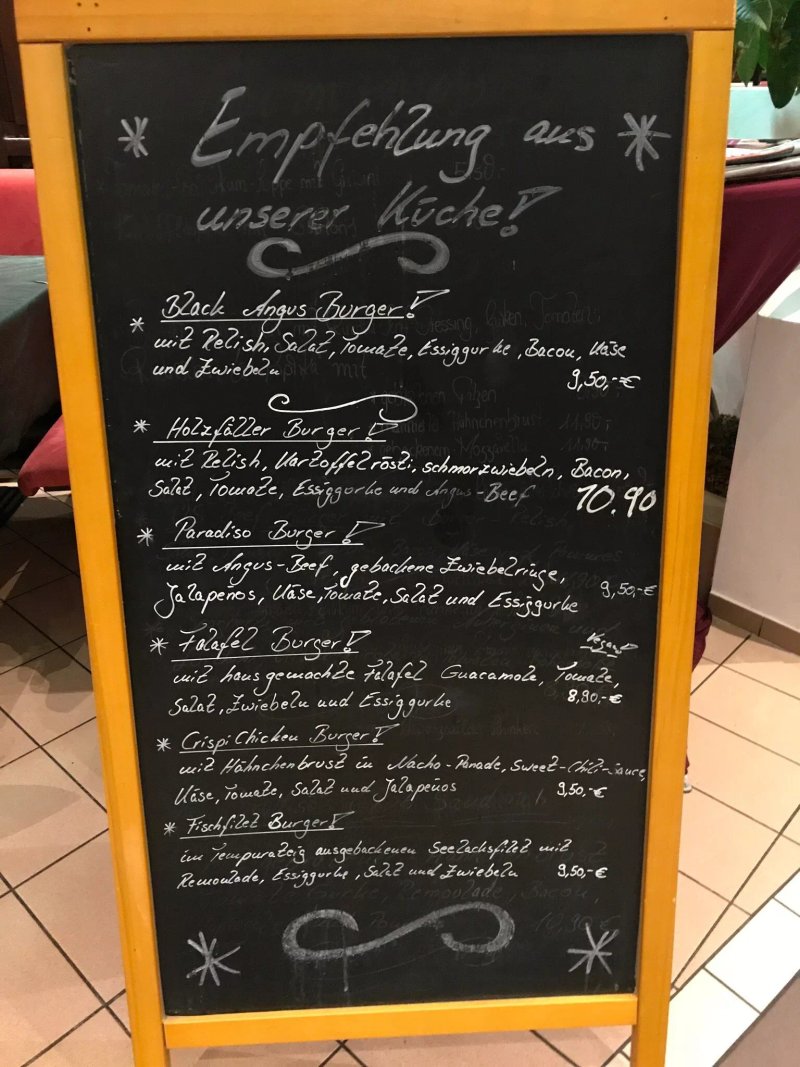 Empfehlung aus
unserer Küche!
* Black Angus Burger!
mit Relish, Salat, Tomate, Essiggurke, Bacon, Käse
und Zwiebeln 9,50,-€
* Holzfäller Burger!
mit Relish, Kartoffelrösti, schmorzwiebeln, Bacon,
Salat, Tomate, Essiggurke und Angus-Beef 10.90
* Paradiso Burger!
mit Angus-Beef, gebackene Zwiebelringe,
Jalapeños, Käse, Tomate, Salat und Essiggurke 9,50,-€
* Falafel Burger! Vegan!
mit hausgemachte Falafel Guacamole, Tomate,
Salat, Zwiebeln und Essiggurke 8,90,-€
* Crispi Chicken Burger!
mit Hähnchenbrust in Nacho-Panade, Sweet-Chili-Sauce,
Käse, Tomate, Salat und Jalapeños 9,50,-€
* Fischfilet Burger!
im Tempurateig ausgebackenen Seelachsfilet mit
Remoulade, Essiggurke, Salat und Zwiebeln 9,50,-€